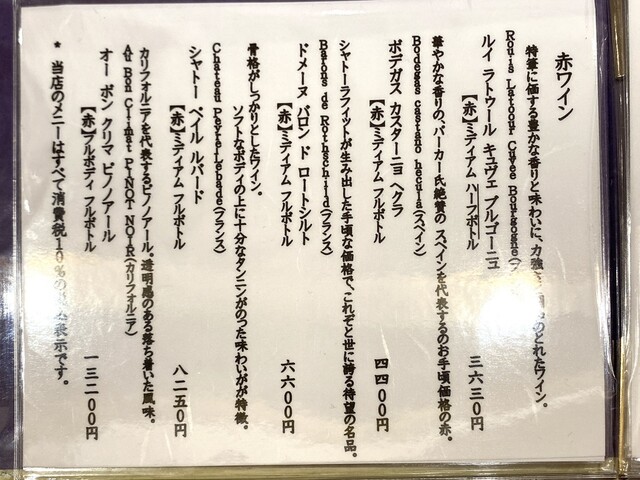 赤ワイン
特筆に価する豊かな香りと味わいに、力強 のとれたワイン。
Rouis Latoour Cuvee Bourgogne(フ
ルイ ラトゥール キュヴェ ブルゴーニュ
【赤】ミディアム ハーフボトル 三六三〇円
華やかな香りの、パーカー氏絶賛の スペインを代表するのお手頃価格の赤。
Bodegas castano hecula(スペイン)
ボデガス カスターニョ ヘクラ
【赤】ミディアム フルボトル 四四〇〇円
シャトーラフィットが生み出した手頃な価格で、これぞと世に誇る待望の名品。
Barons de Rothschild(フランス)
ドメーヌ バロン ド ロートシルト
【赤】ミディアム フルボトル 六六〇〇円
骨格がしっかりとしたワイン。
ソフトなボディの上に十分なタンニンがのつた味わいがが特徴。
Chateau PeyreLebade(フランス)
シャトー ペイル ルバード
【赤】ミディアム フルボトル 八二五〇円
カリフォルニアを代表するピノノアール。透明感のある落ち着いた風味。
Au Bon Climat PINOT NOIR(カリフォルニア)
オー ボン クリマ ピノノアール
【赤】フルボディ フルボトル 一三二〇〇円
* 当店のメニューはすべて消費税10%の 表示です。